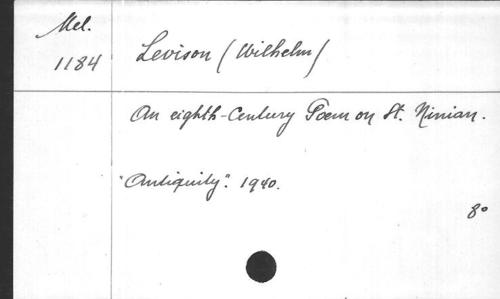 Mel.
1184
Levison (Wilhelm)
An eighth-Century Poem on St. Ninian.
"Antiquity". 1940.
8°